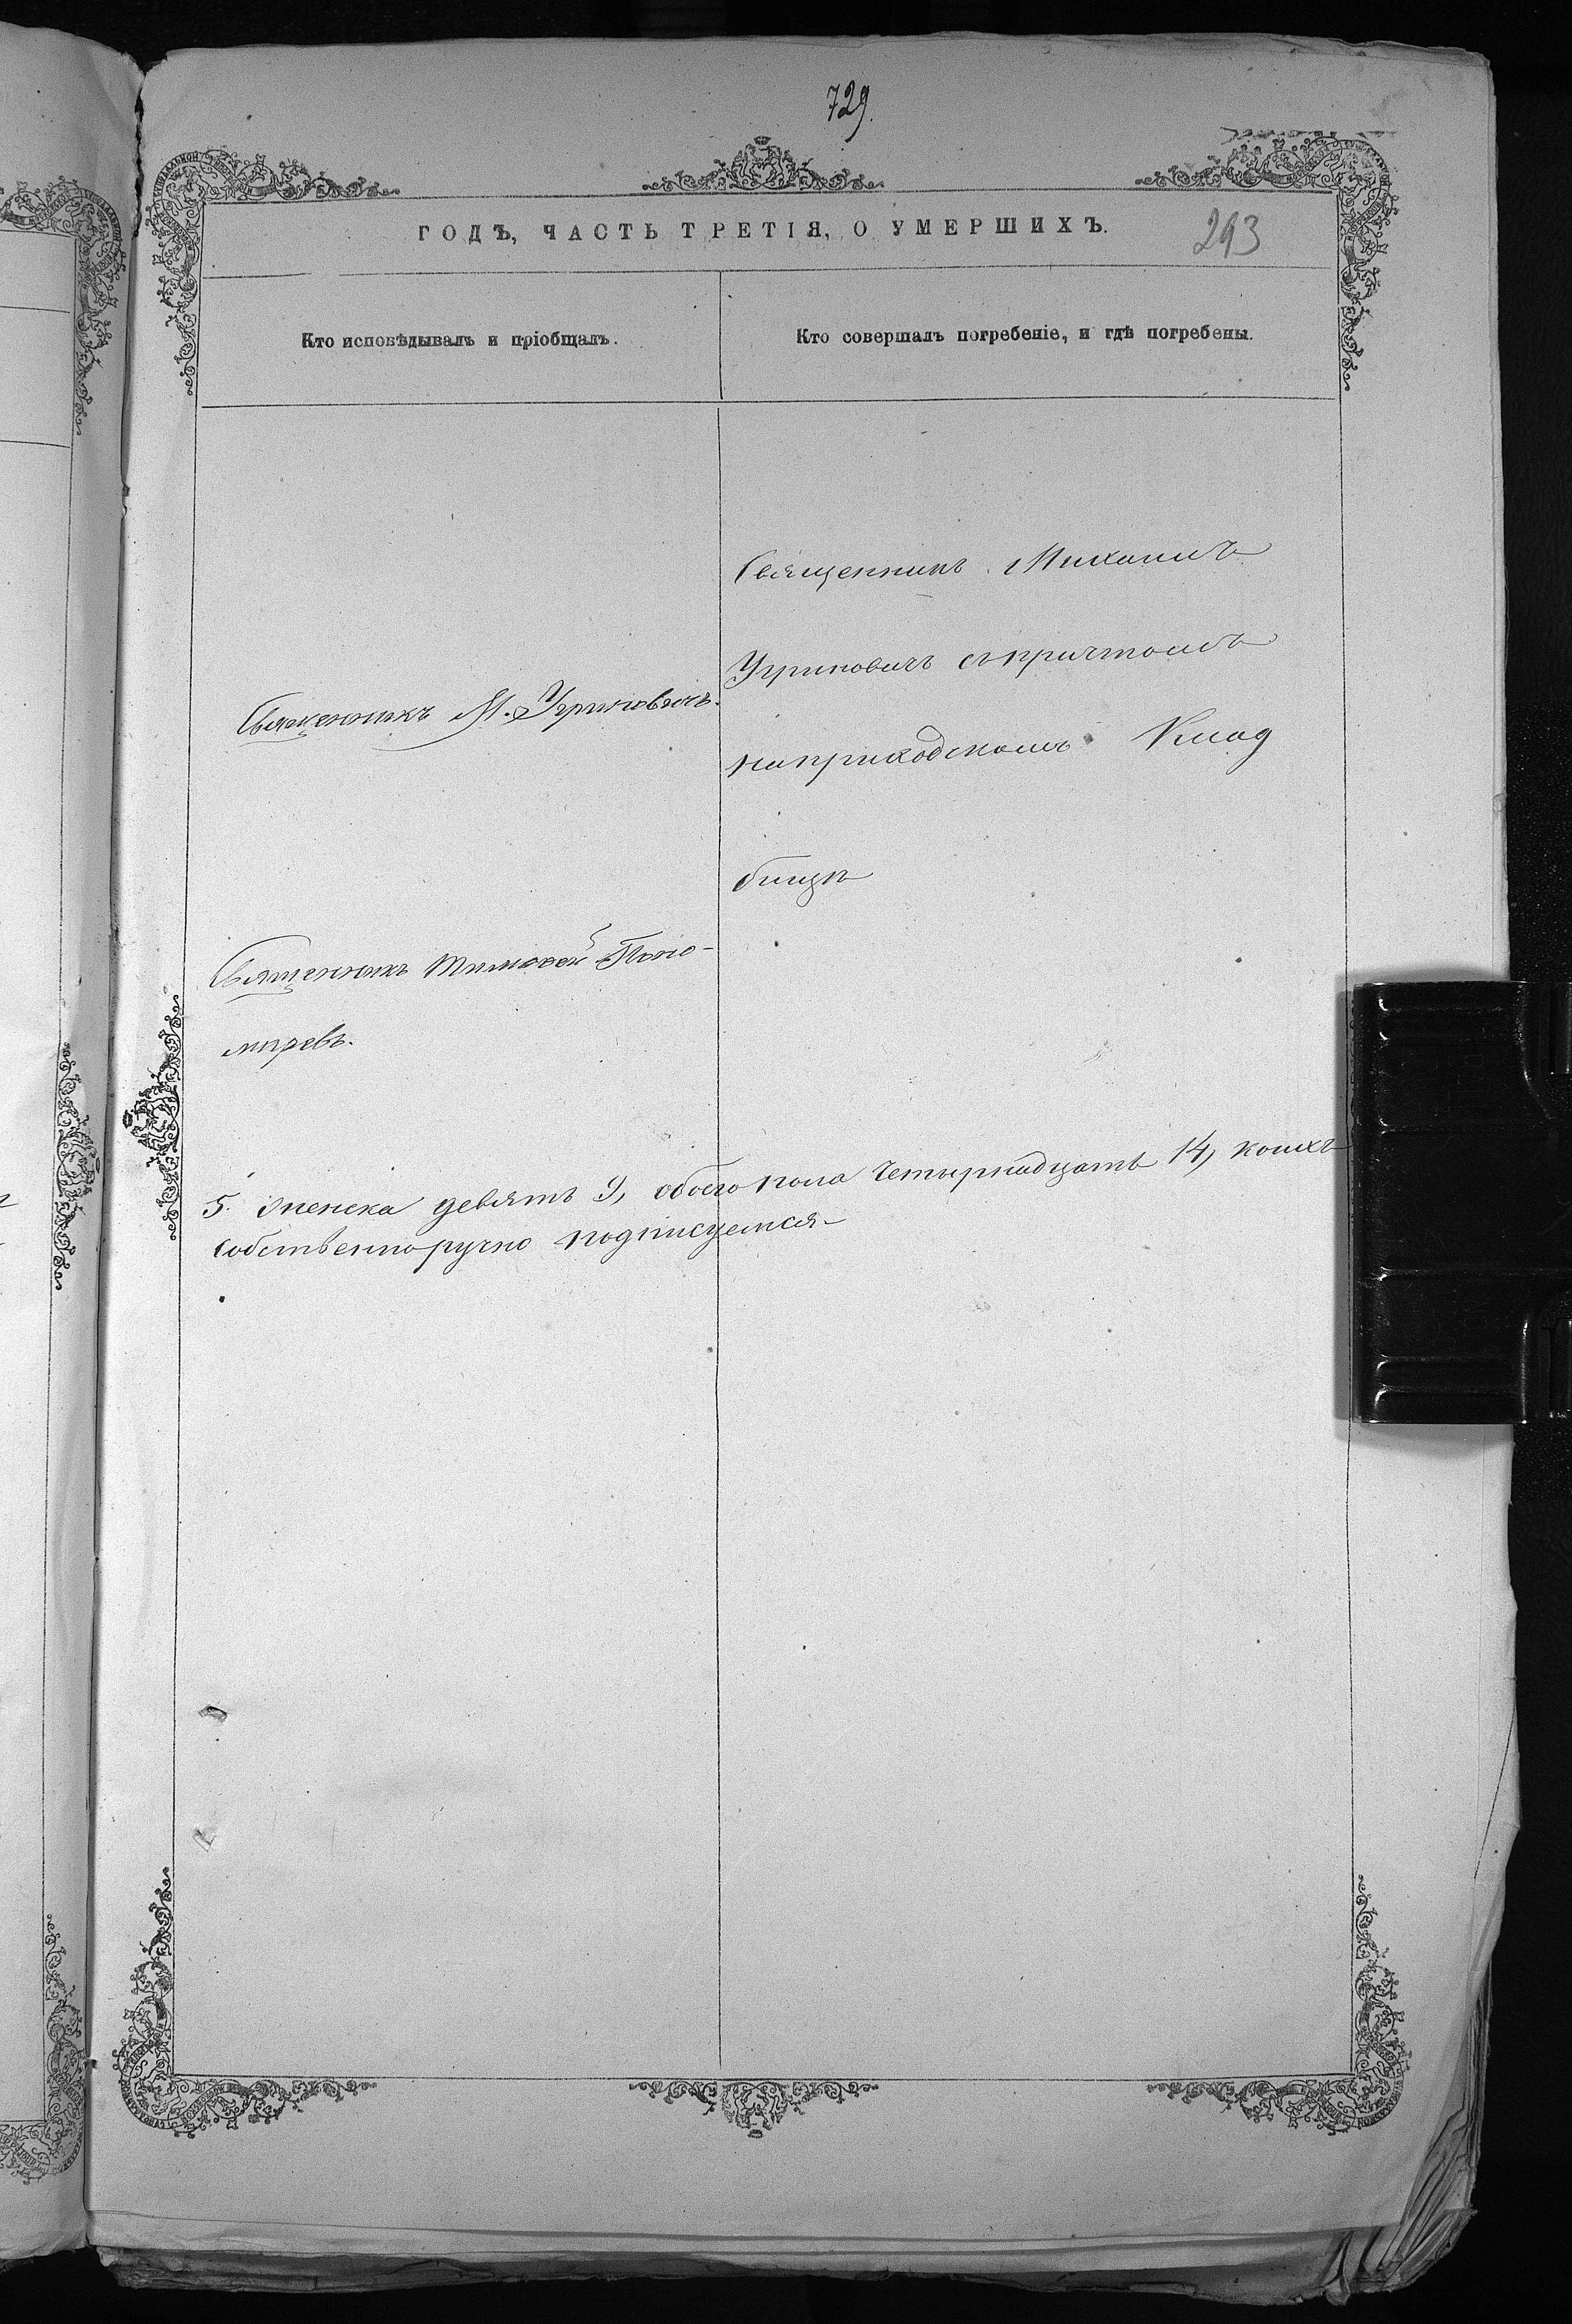 729.
ГОДЪ, ЧАСТЬ ТРЕТІЯ, О УМЕРШИХЪ.
293
Кто исповѣдывалъ и пріобщалъ.
Кто совершалъ погребеніе, и гдѣ погребены.
Священникъ М. Угриновичъ.
Священникъ Тимофей
Священникъ Михаилъ
Угриновичъ съ причтомъ
на приходскомъ Клад
бищѣ
5. Женска девять 9, обоего пола четырнадцать 14, коихъ
собственноручно подписуемся